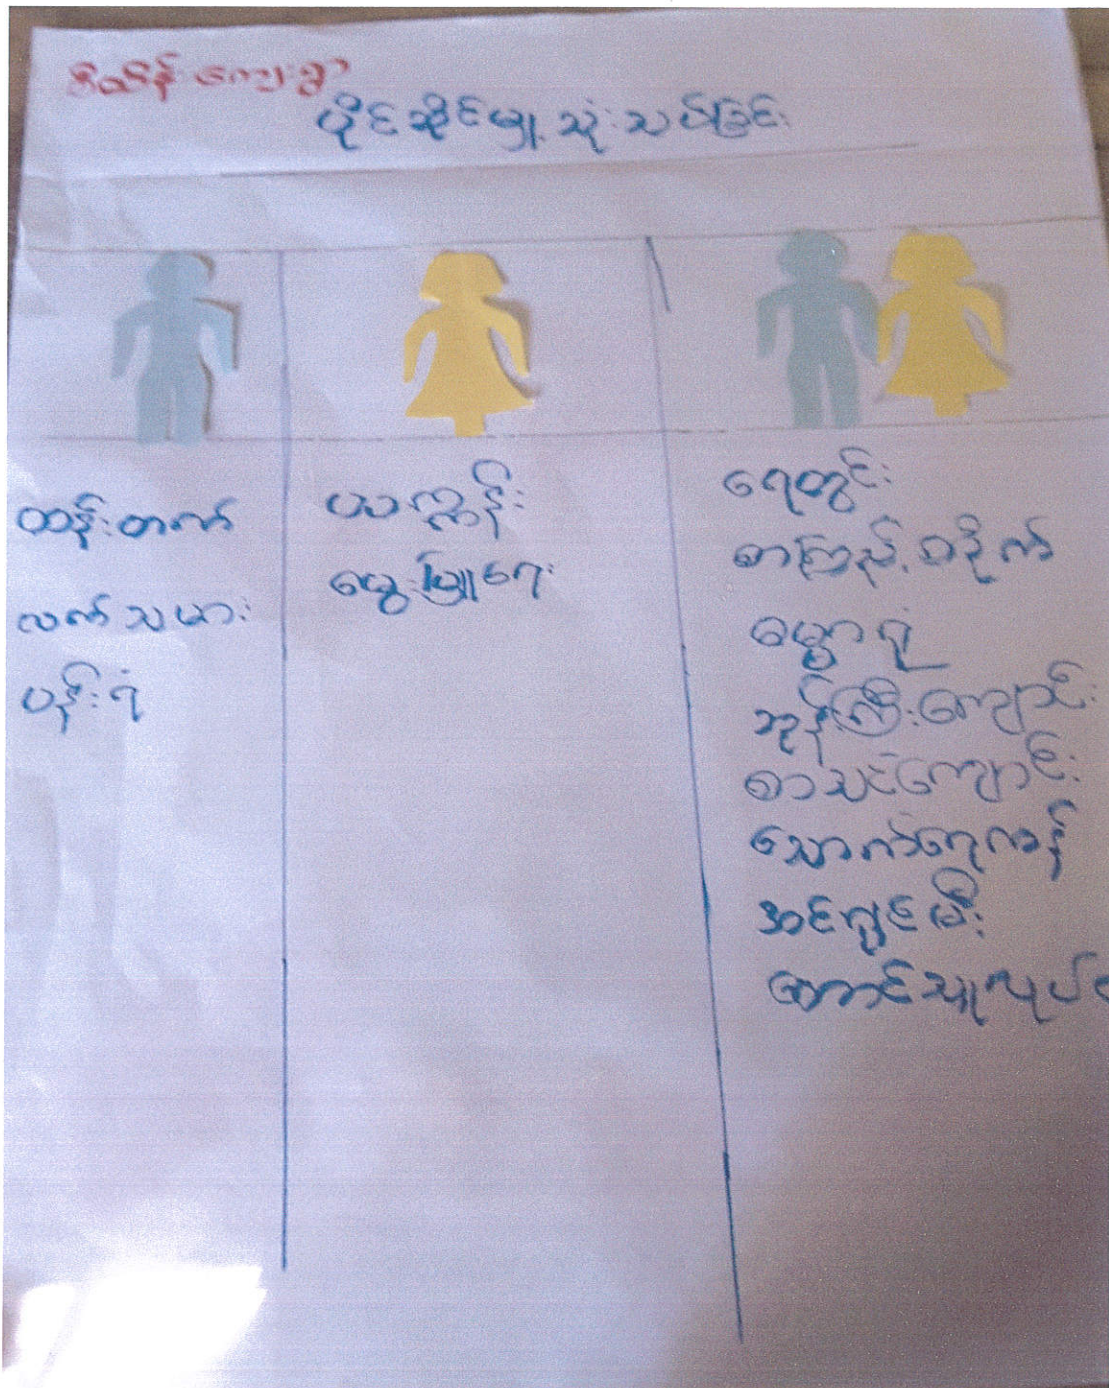 ကျေးရွာ
ပိုင်ဆိုင်မှု သုံးသပ်ခြင်း
ထန်းတက်
လက်သမား
ပန်းရံ
ယက္ကန်း
မွေးမြူရေး
ရေတွင်း
စာကြည့်တိုက်
ဓမ္မာရုံ
ဘုန်းကြီးကျောင်း
စာသင်ကျောင်း
သောက်ရေကန်
အင်ဂျင်မီး
တောင်သူလုပ်